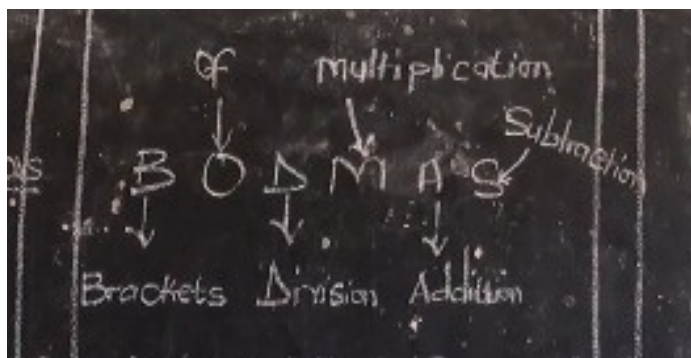 of multiplication
Subtraction
B O D M A S
Brackets Division Addition